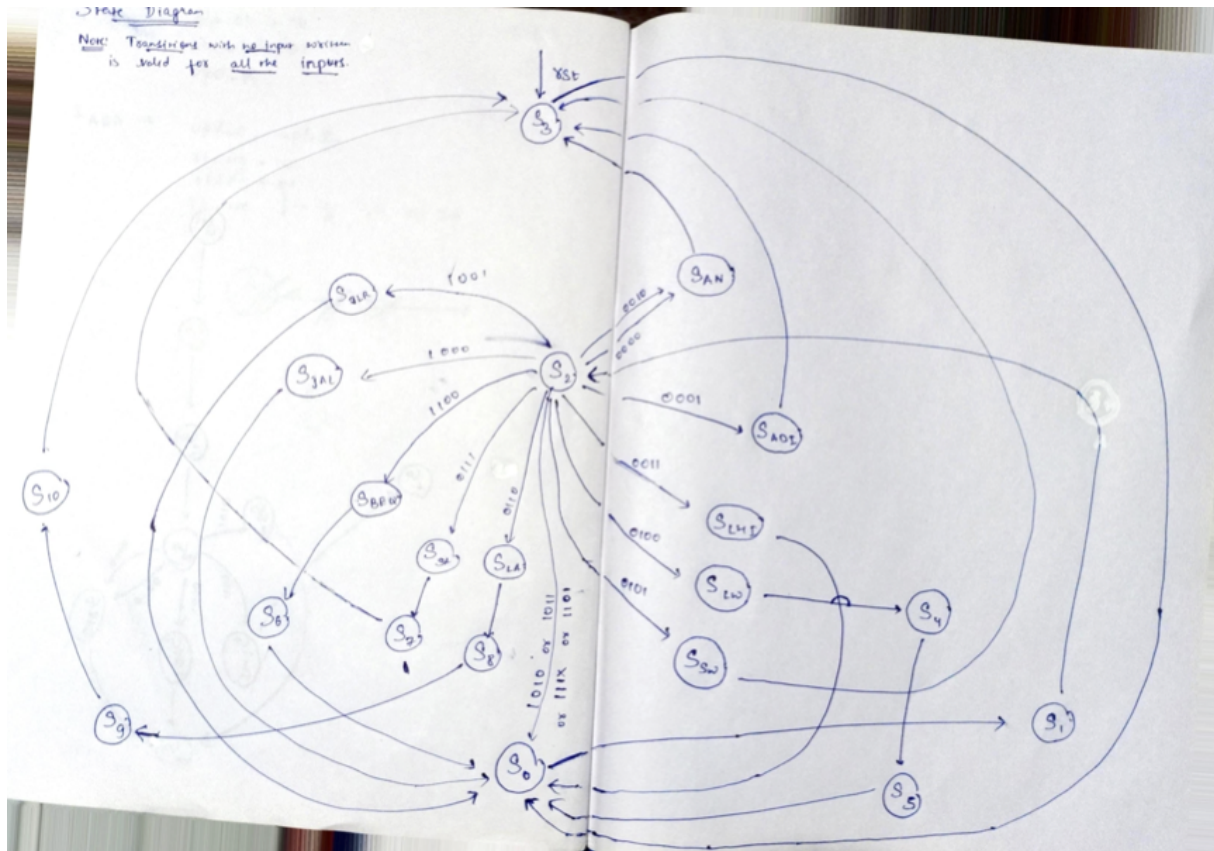 State Diagram
Note: Transitions with no input written
is valid for all the inputs.
rst
S3
SAN
1001
SJLR
0010
0000
S2
1000
SJAL
0001
SADI
1100
0111
0110
0011
S10
SBEQ
SLHI
0100
SLW
SLA
0101
S4
S6
S7
S8
SSW
1010 or 1011
or 111X or 1101
S9
S1
S0
S5